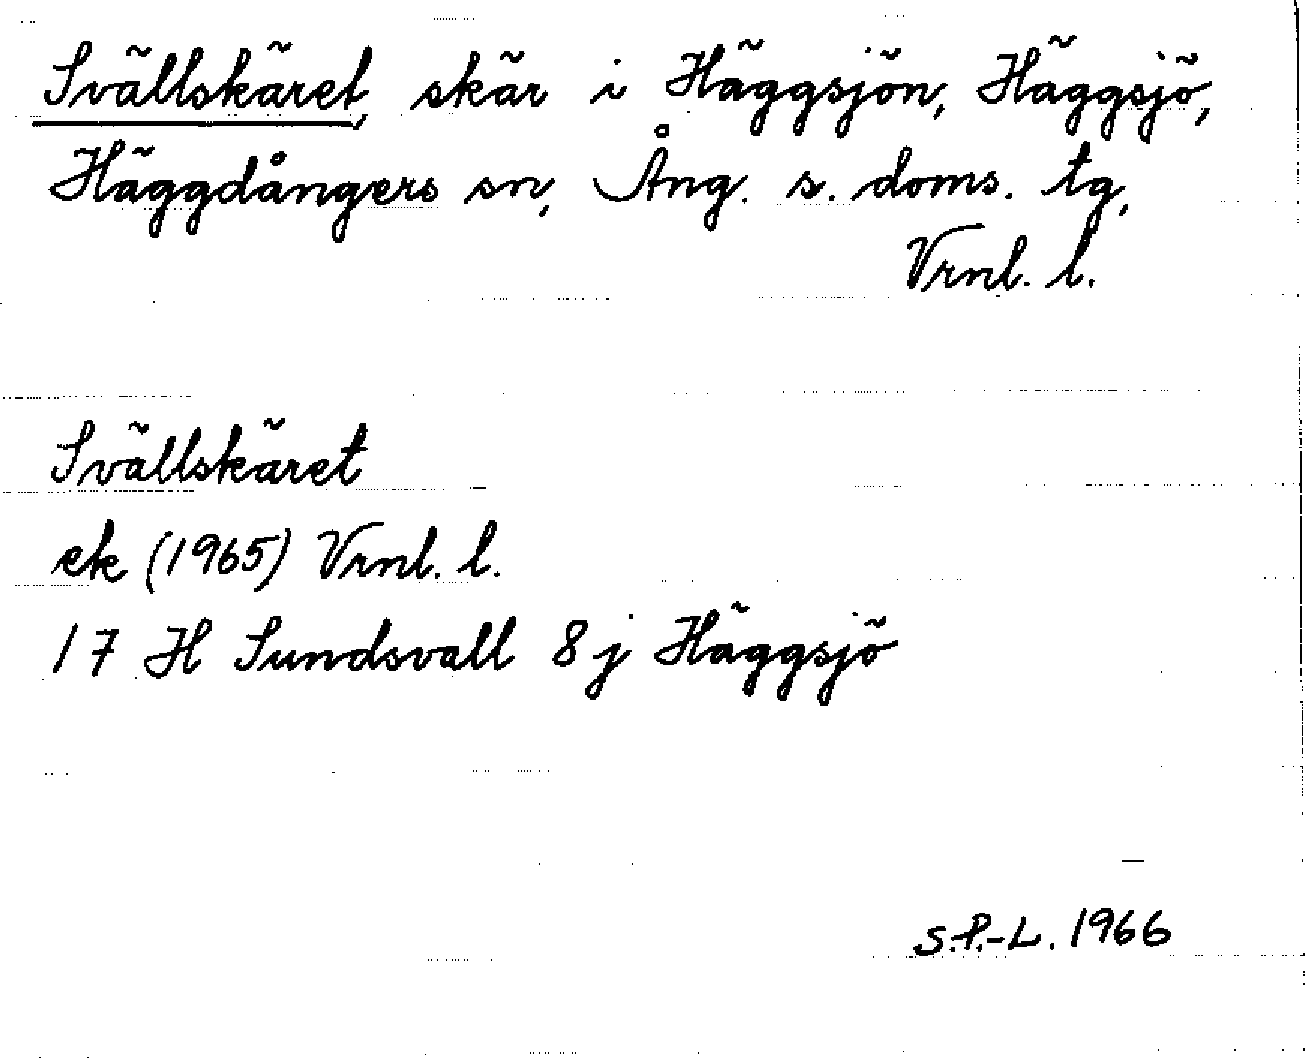 Svällskäret, skär i Häggsjön, Häggsjö,
Häggdångers sn, Ång. s. doms. tg,
Vrnl. l.
Svällskäret
ek (1965) Vrnl. l.
17 H Sundsvall 8j Häggsjö
S.P.-L. 1966